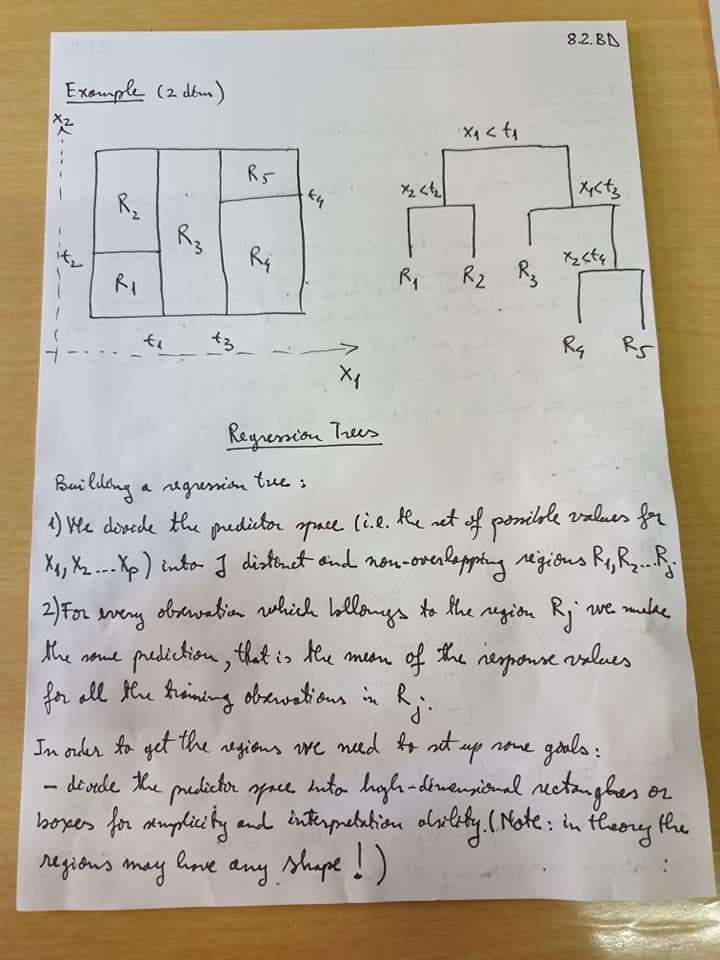 8.2.BD
Example (2 dim)
X2
R2
R1
R3
R5
R4
t4
t2
t1
t3
X1
x1 < t1
x2 < t2
x1 < t3
x2 < t4
R1
R2
R3
R4
R5
Regression Trees
Building a regression tree :
1) We divide the predictor space (i.e. the set of possible values for
X1, X2 ... Xp) into J distinct and non-overlapping regions R1, R2 ... Rj.
2) For every observation which bellongs to the region Rj we make
the same prediction, that is the mean of the response values
for all the training observations in Rj.
In order to get the regions we need to set up some goals :
- divide the predictor space into high-dimensional rectangles or
boxes for simplicity and interpretation ability. (Note : in theory the
regions may have any shape ! )